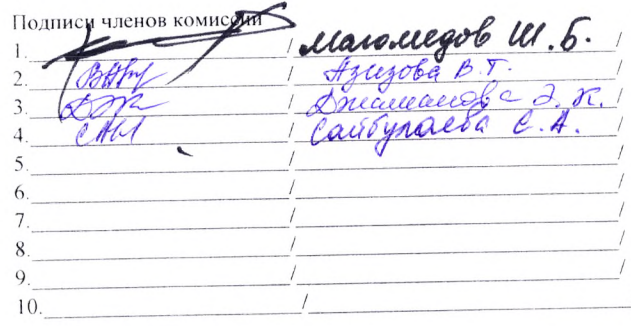 Подписи членов комиссии
1. / Магомедов Ш. Б. /
2. / Азизова В. Г. /
3. / Э. К. /
4. / Сайбулаева С. А. /
5. / /
6. / /
7. / /
8. / /
9. / /
10. /